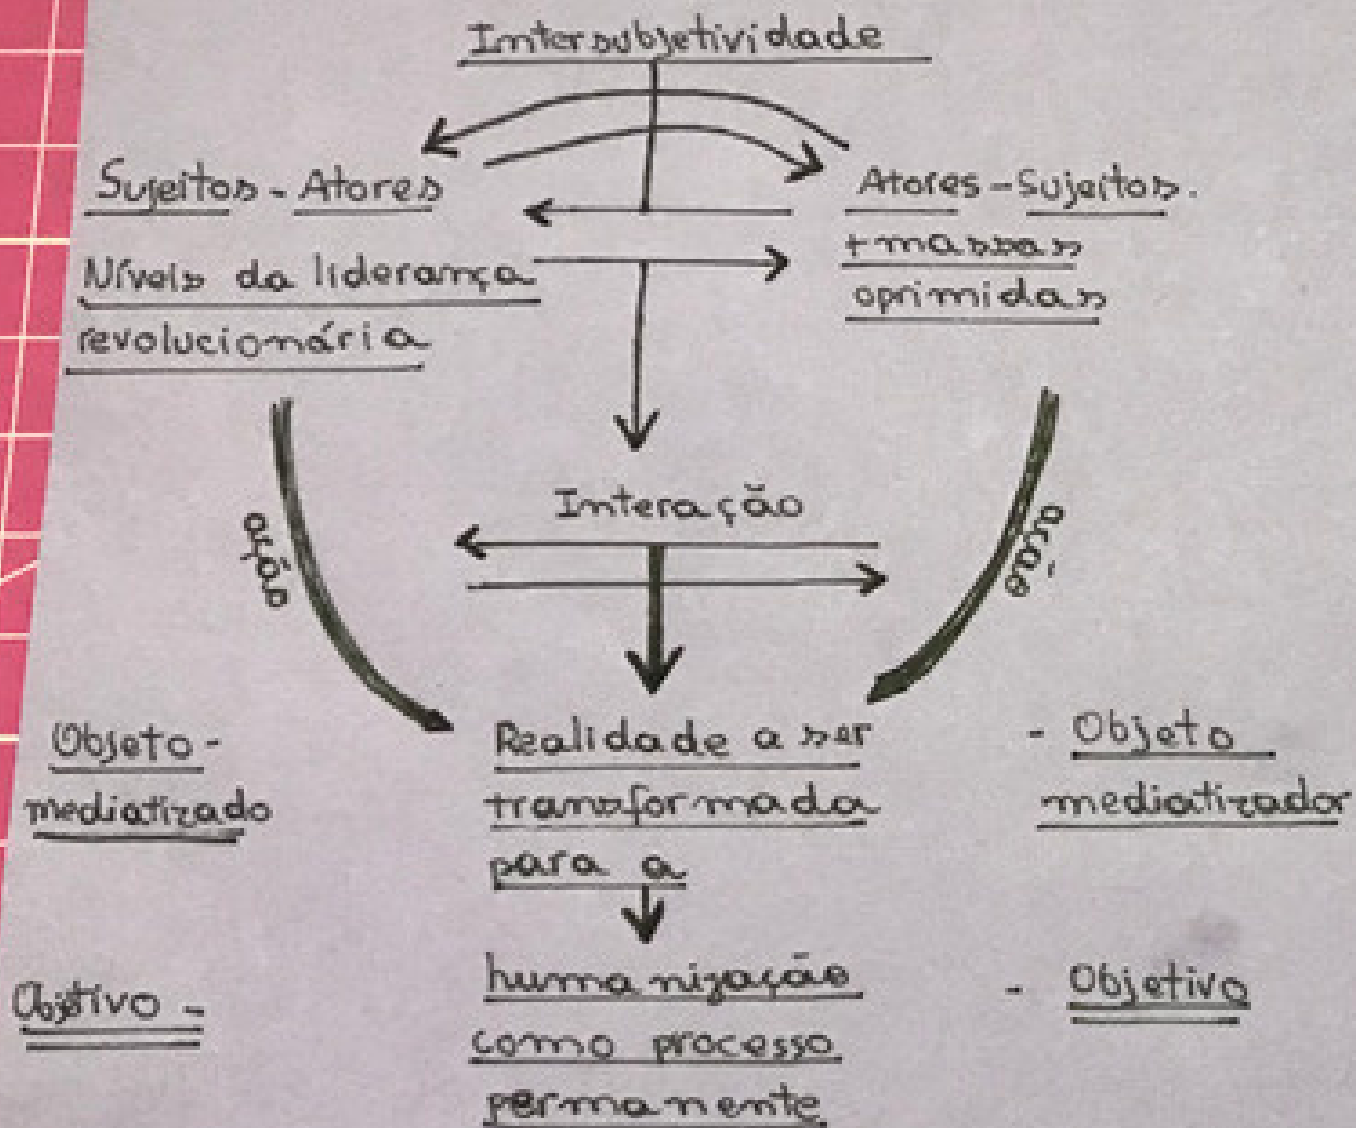 Intersubjetividade
Sujeitos - Atores
Níveis da liderança
revolucionária
Atores - Sujeitos.
+ massas
oprimidas
Interação
ação
ação
Objeto -
mediatizado
Realidade a ser
transformada
para a
- Objeto
mediatizador
Objetivo -
humanização
como processo
permanente
- Objetivo